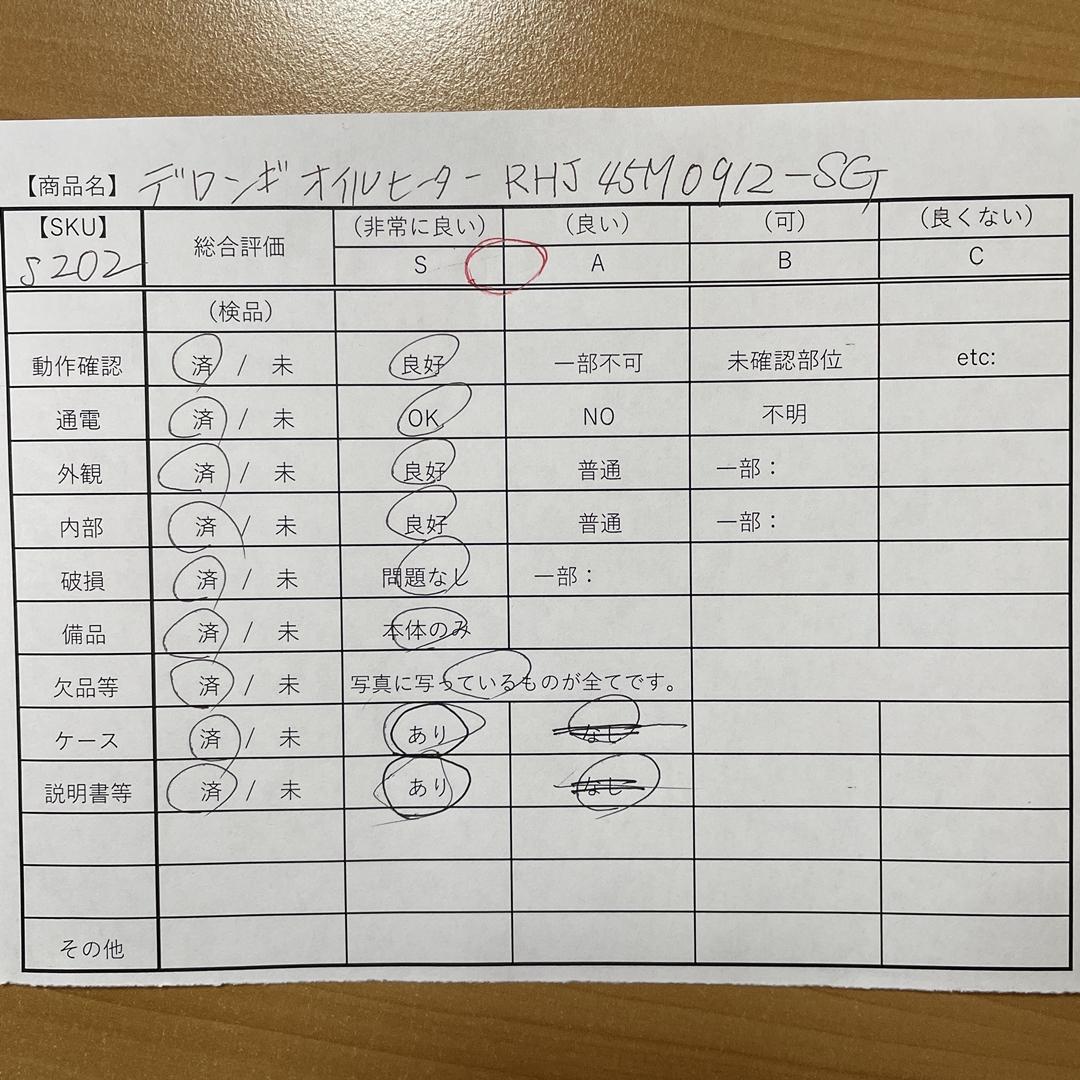 【商品名】 デロンギオイルヒーター RHJ45M0912-SG
【SKU】 総合評価 (非常に良い) (良い) (可) (良くない)
S202 S A B C
(検品)
動作確認 済 / 未 良好 一部不可 未確認部位 etc:
通電 済 / 未 OK NO 不明
外観 済 / 未 良好 普通 一部：
内部 済 / 未 良好 普通 一部：
破損 済 / 未 問題なし 一部：
備品 済 / 未 本体のみ
欠品等 済 / 未 写真に写っているものが全てです。
ケース 済 / 未 あり なし
説明書等 済 / 未 あり なし
その他